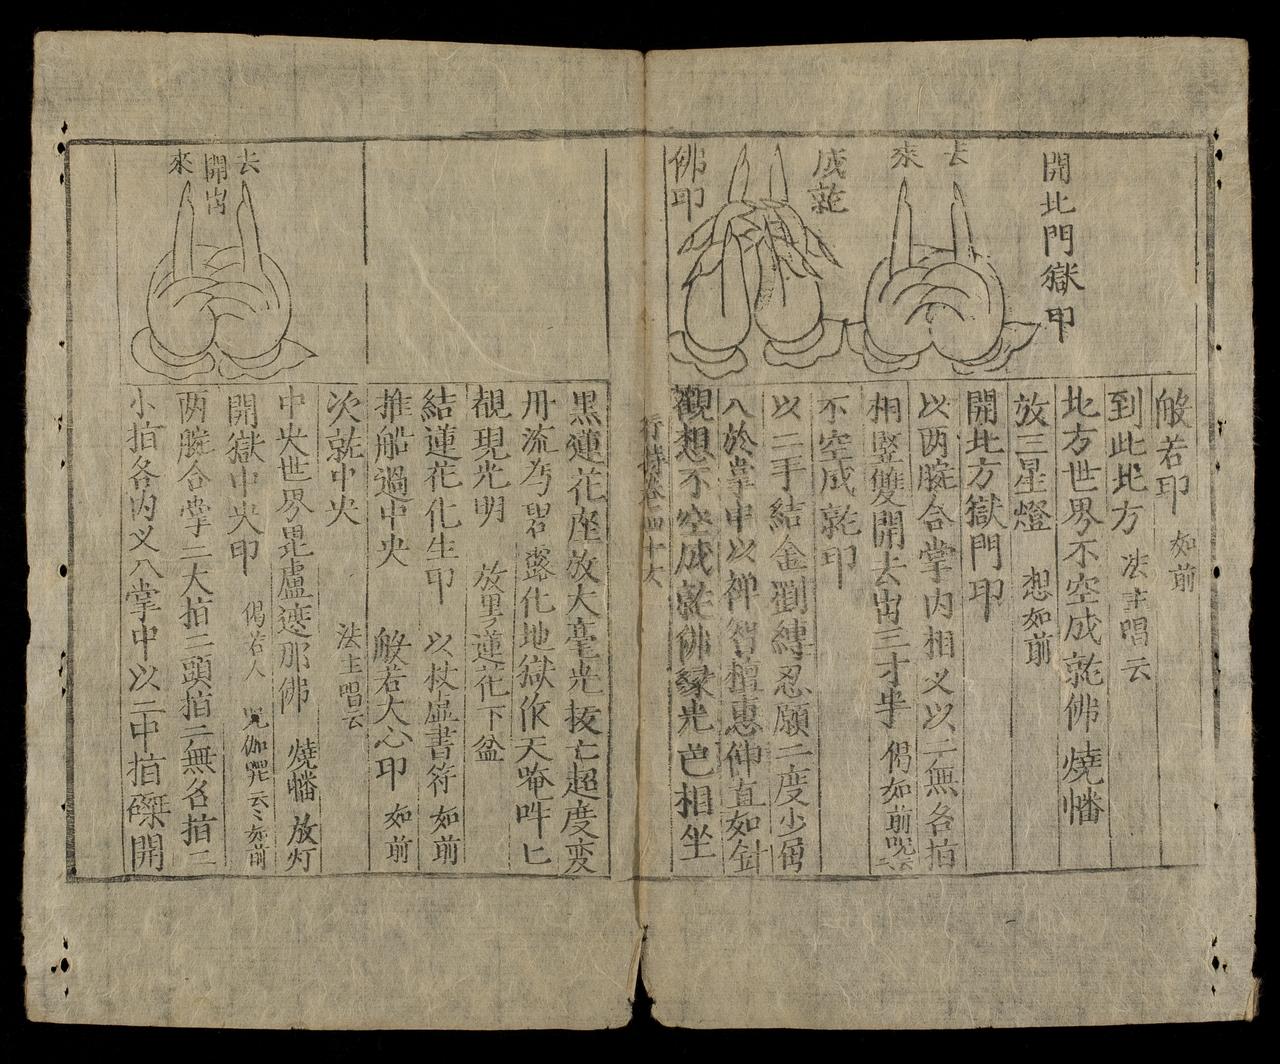 開北門獄印
去
來
成就
佛印
般若印 如前
到此北方 法主唱云
北方世界不空成就佛 燒幡
放三星燈 想如前
開北方獄門印
以两腕合掌内相义以二無名拍
相竪雙開去出三才半 偈如前呪
不空成就印
以二手結金剛縛忍願二度少屈
入於掌中以禅智檀惠伸直如針
觀想不空成就佛緑光芭相坐
行持卷四十六
黑蓮花座放大毫光拔亡超度变
月流為 露化地獄作天唵吽匕
覩現光明 放黑蓮花下盆
結蓮花化生印 以杖虛書符 如前
推船過中央 般若大心印 如前
次就中央 法主唱云
中央世界毘盧遮那佛 燒幡 放灯
開獄中央印 偈若人 呪伽 云〻如前
两腕合掌二大拍二頭拍二無名拍二
小拍各内义入掌中以二中拍磔開
去
開出
來